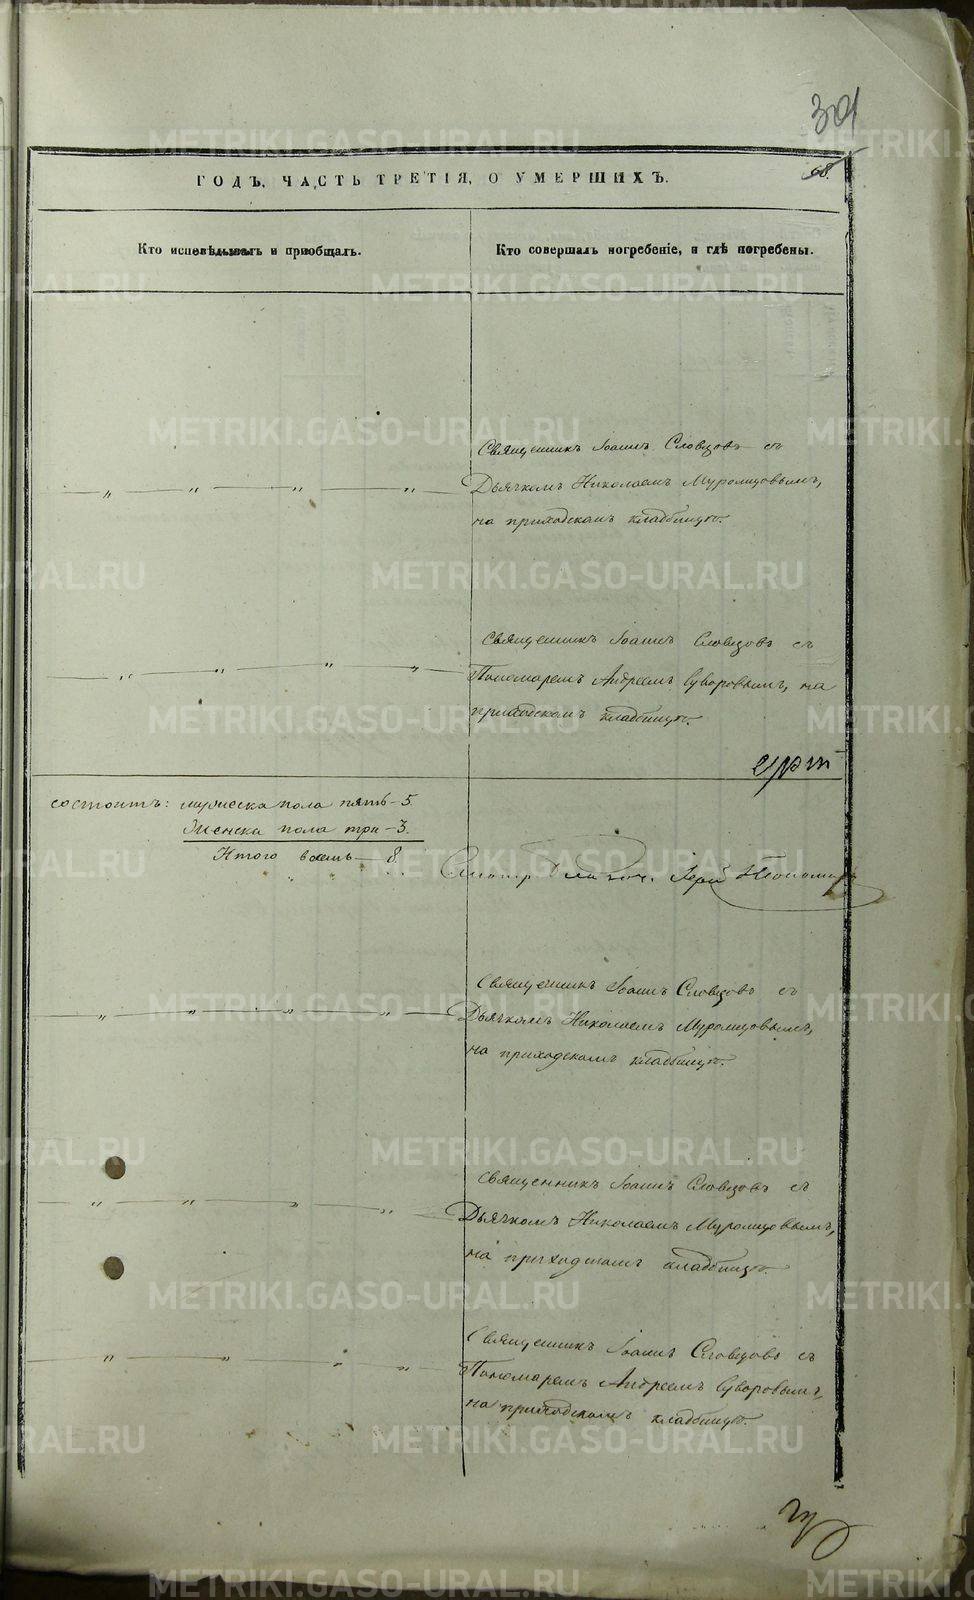 301
68.
ГОДЪ, ЧАСТЬ ТРЕТІЯ, О УМЕРШИХЪ.
Кто исповѣдывалъ и пріобщалъ.
Кто совершалъ погребеніе, и гдѣ погребены.
Священникъ Іоаннъ Словцовъ съ
Дьячкомъ Николаемъ Муромцовымъ,
на приходскомъ кладбищѣ.
Священникъ Іоаннъ Словцовъ съ
Пономаремъ Андреемъ Суворовымъ, на
приходскомъ кладбищѣ.
состоитъ: мужеска пола пять – 5.
Женска пола три – 3.
Итого всемъ – 8.
Священникъ Іоаннъ Словцовъ съ
Дьячкомъ Николаемъ Муромцовымъ,
на приходскомъ кладбищѣ.
Священникъ Іоаннъ Словцовъ съ
Дьячкомъ Николаемъ Муромцовымъ,
на приходскомъ кладбищѣ.
Священникъ Іоаннъ Словцовъ съ
Пономаремъ Андреемъ Суворовымъ,
на приходскомъ кладбищѣ.
METRIKI.GASO-URAL.RU